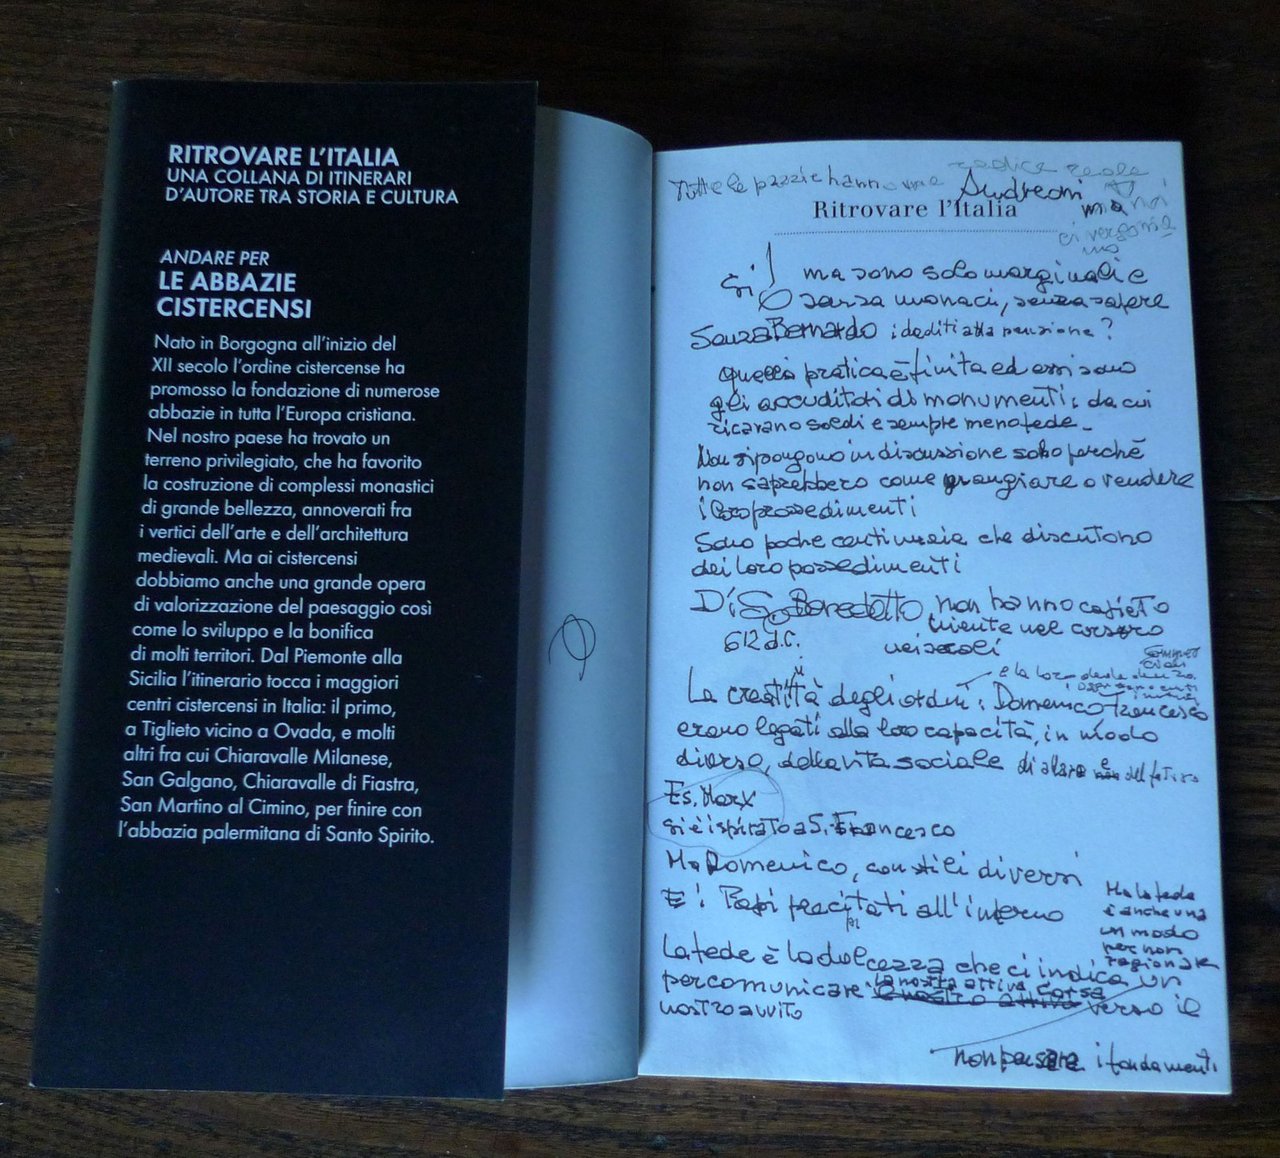 RITROVARE L'ITALIA
UNA COLLANA DI ITINERARI
D'AUTORE TRA STORIA E CULTURA
ANDARE PER
LE ABBAZIE
CISTERCENSI
Nato in Borgogna all'inizio del
XII secolo l'ordine cistercense ha
promosso la fondazione di numerose
abbazie in tutta l'Europa cristiana.
Nel nostro paese ha trovato un
terreno privilegiato, che ha favorito
la costruzione di complessi monastici
di grande bellezza, annoverati fra
i vertici dell'arte e dell'architettura
medievali. Ma ai cistercensi
dobbiamo anche una grande opera
di valorizzazione del paesaggio così
come lo sviluppo e la bonifica
di molti territori. Dal Piemonte alla
Sicilia l'itinerario tocca i maggiori
centri cistercensi in Italia: il primo,
a Tiglieto vicino a Ovada, e molti
altri fra cui Chiaravalle Milanese,
San Galgano, Chiaravalle di Fiastra,
San Martino al Cimino, per finire con
l'abbazia palermitana di Santo Spirito.
Tutte le pazzie hanno una radice reale
Andreoni
mia
Ritrovare l'Italia
Si! ma sono solo marginali e
senza monaci, senza sapere
Senza Bernardo i dediti alla pensione?
Quella pratica è finita ed essi sono
gli accuditori di monumenti: da cui
ricavano soldi e sempre meno fede.
Non si pongono in discussione solo perché
non saprebbero come mangiare o vendere
i loro possedimenti
Sono poche centinaia che discutono
dei loro possedimenti
Di S. Benedetto non hanno capito
niente nel corso
612 d.C. nei secoli
e la loro
La creatività degli ordini: Domenico Francesco
erano legati alla loro capacità, in modo
diverso, della vita sociale di allora e non del futuro
Es. Marx
si è ispirato a S. Francesco
Ma Domenico, con stili diversi
E i Papi precipitati all'inferno
Ma la fede
è anche una
un modo
per non
ragionare
La fede è la dolcezza che ci indica un
per comunicare la nostra attiva corsa verso il
nostro avvito
non pensare i fondamenti